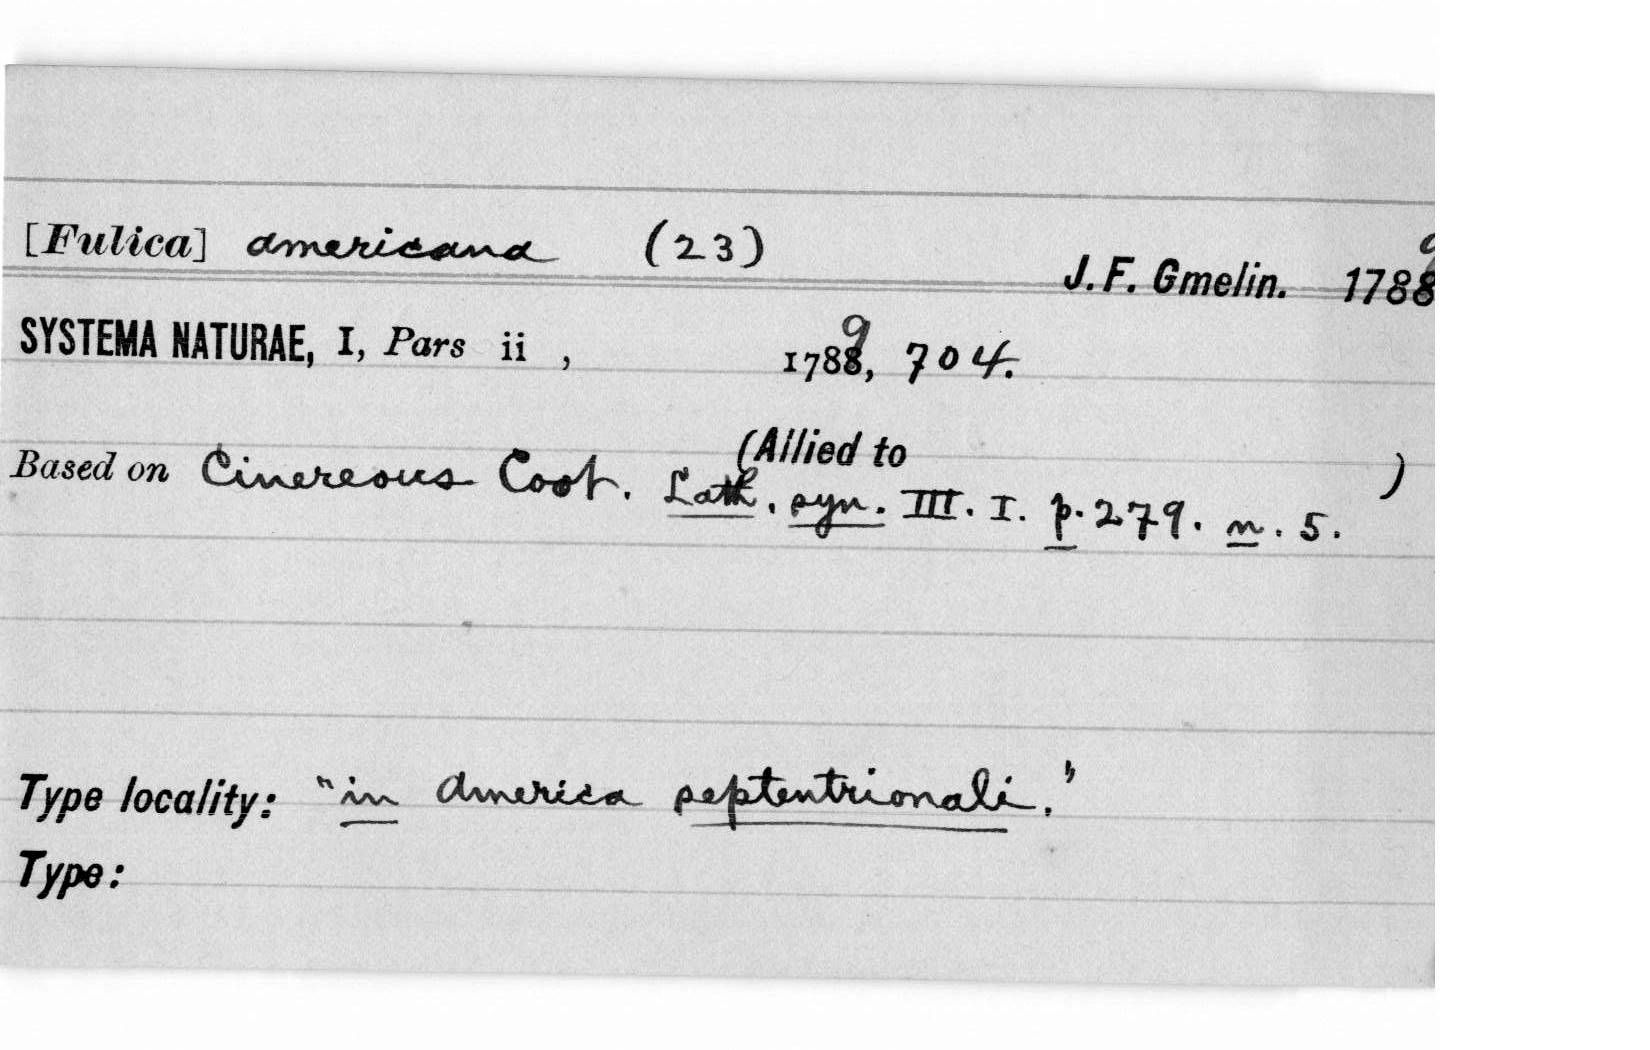 [Fulica] americana (23)
J. F. Gmelin. 1789
SYSTEMA NATURAE, I, Pars ii , 1789, 704.
Based on Cinereous Coot. (Allied to )
Lath. syn. III. I. p. 279. n. 5.
Type locality: "in America septentrionali."
Type: